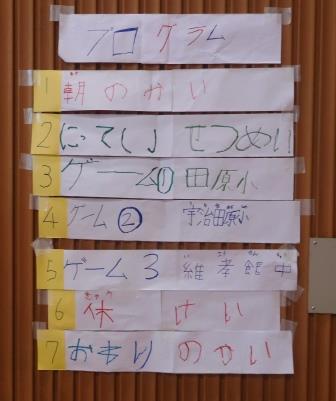 プログラム
1 朝のかい
2 にってい せつめい
3 ゲーム① 田原小
4 ゲーム② 宇治田原小
5 ゲーム3 維孝館中
6 休けい
7 おわりのかい